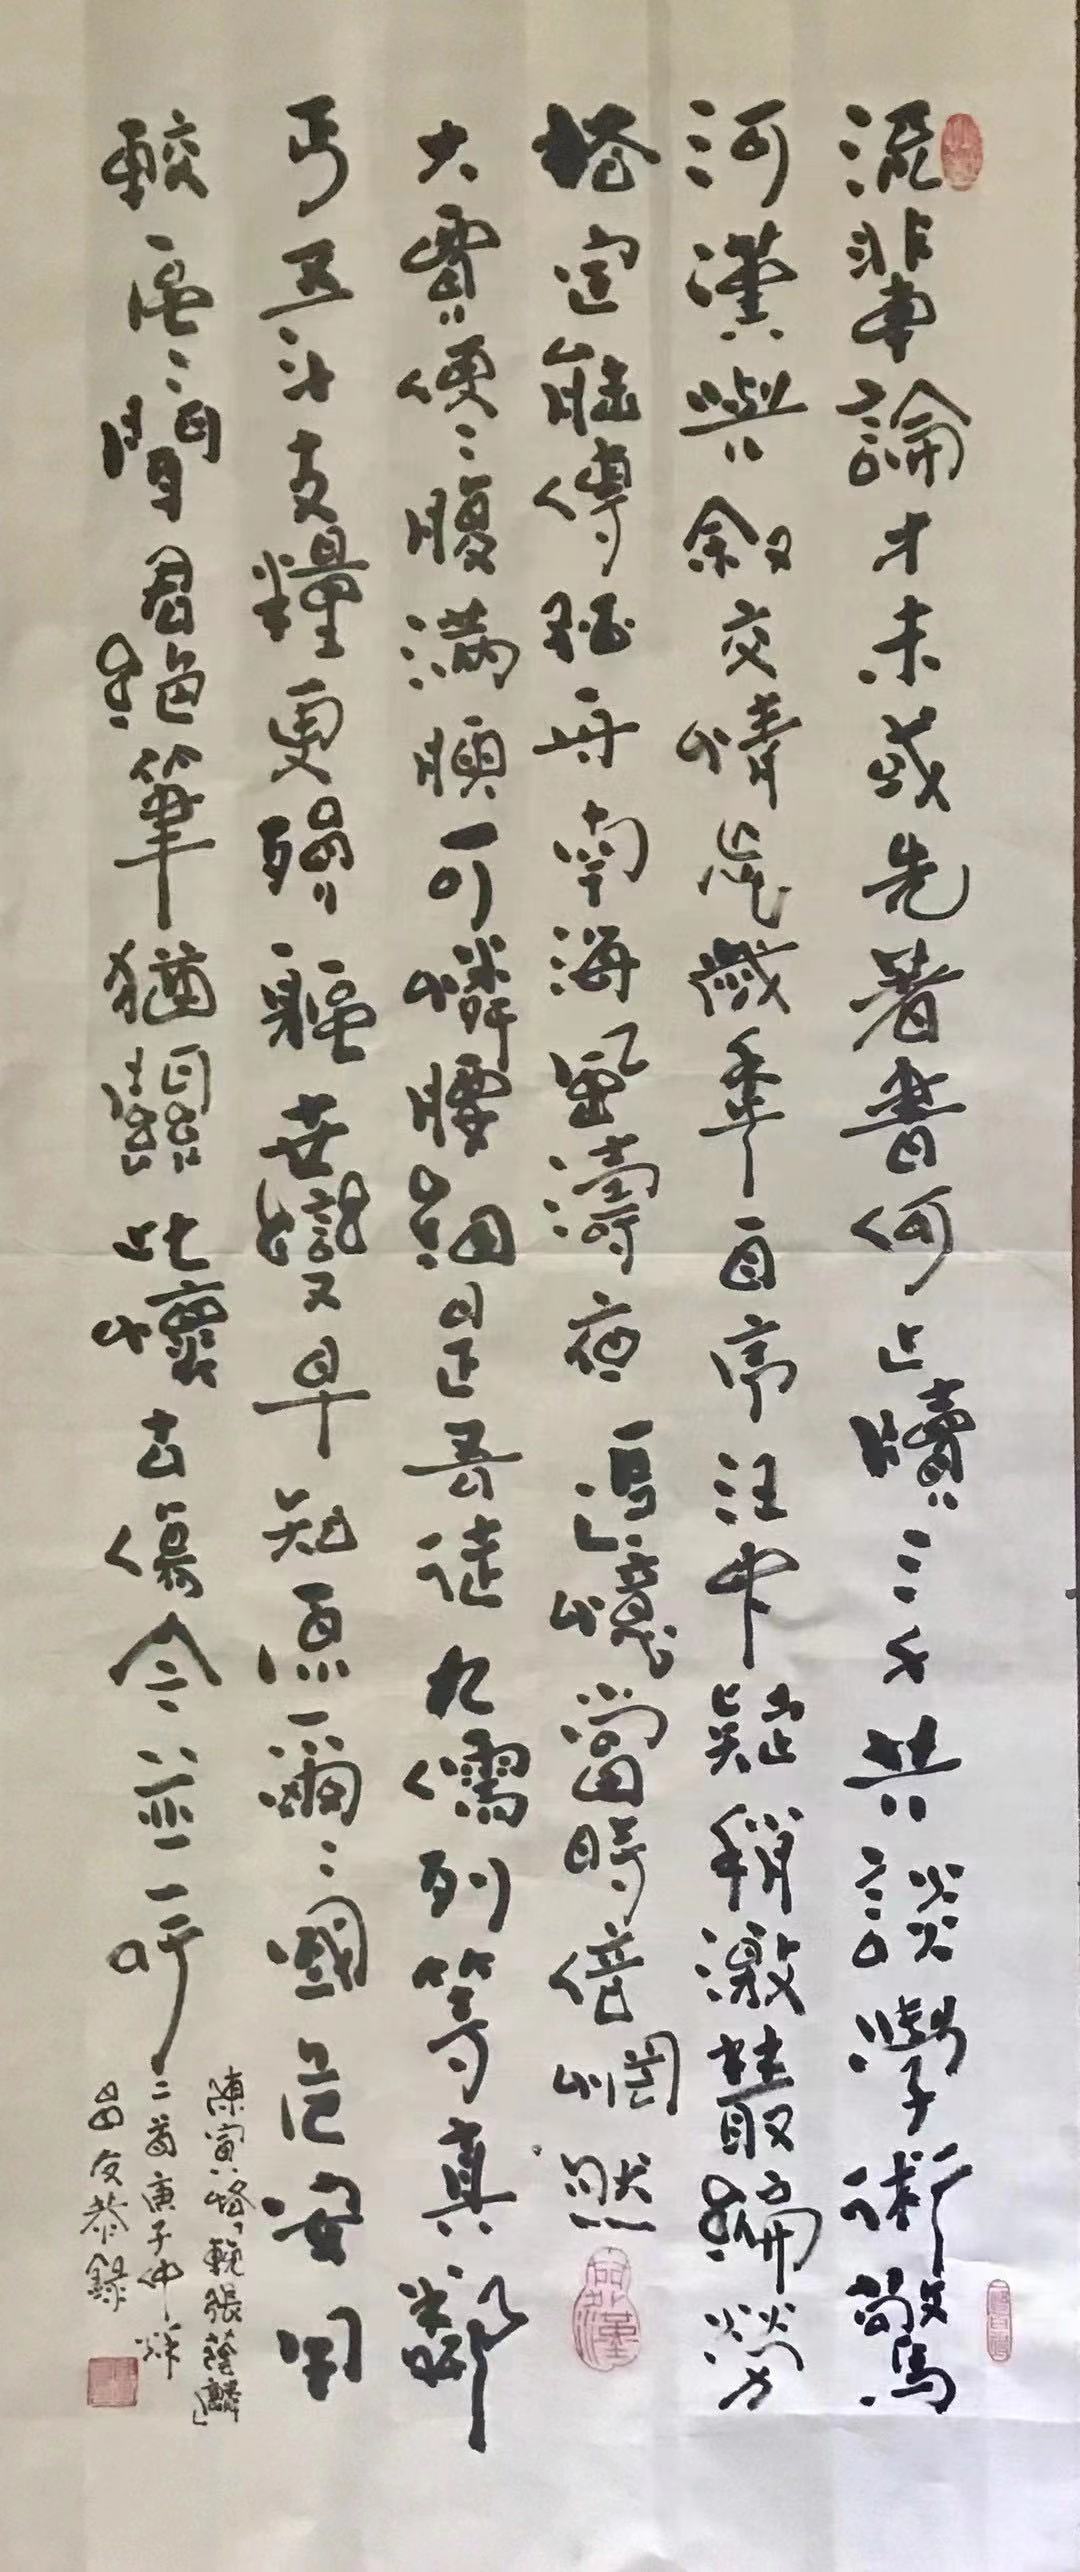 流輩論才未或先著書何止牘三千共談學術驚
河漢與敘交情忘歲年自序汪中疑稍激叢編勞
格定能傳孤舟南海風濤夜迴憶當時倍惘然
大賈便々腹滿腴可憐腰細是吾徒九儒列等真鄰
丐五斗支糧更殞軀世變早知原爾々國危安用
較區々聞君絕筆猶關此懷古傷今並一吁
陳寅恪「輓張蔭麟」
二首庚子仲秋
恭錄